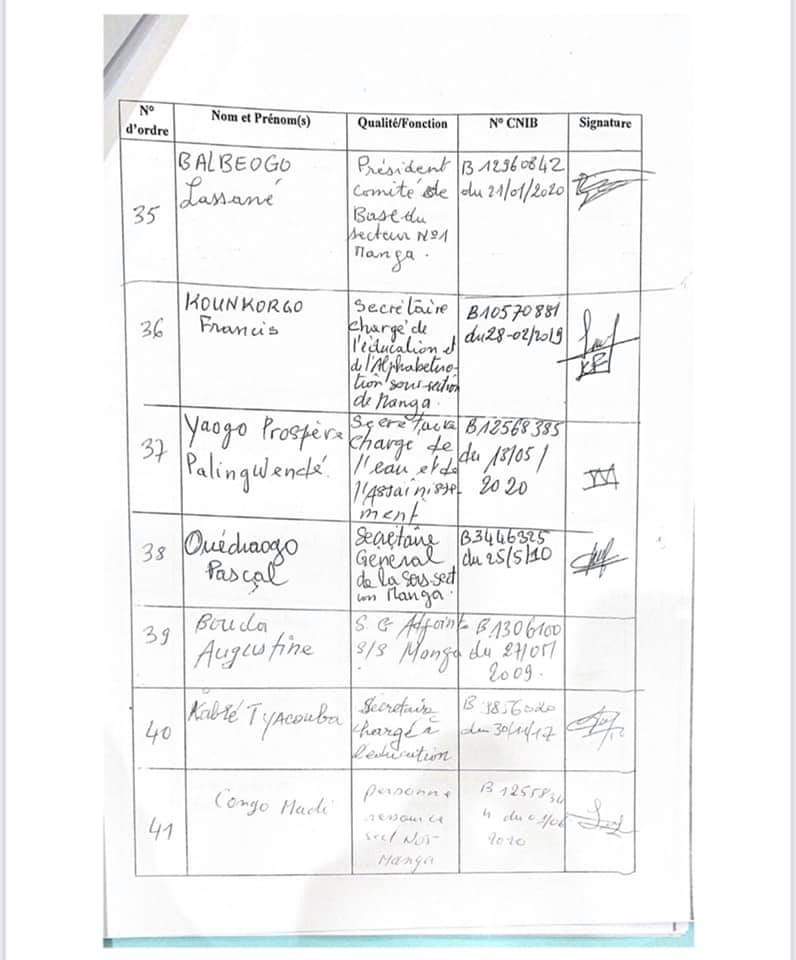 N° d'ordre
Nom et Prénom(s)
Qualité/Fonction
N° CNIB
Signature
35
BALBEOGO
Lassané
Président
comité de
Base du
secteur N°1
Manga.
B12960842
du 21/01/2020
36
KOUNKORGO
Francis
Secrétaire
chargé de
l'éducation et
de l'Alphabetis-
ation sous-section
de Manga.
B10570881
du 28-02/2019
37
Yaogo Prospère
Palingwendé.
Secrétaire
chargé de
l'eau et de
l'Assainisse-
ment
B12568385
du 13/05/
2020
38
Ouédraogo
Pascal
Secrétaire
General
de la sous-sect
ion Manga.
B3446325
du 25/5/10
39
Bouda
Augustine
S. G Adjointe
S/S Manga
B1306100
du 27/05
2009.
40
Kabré TYACOUBA
Secrétaire
chargé à
l'éducation
du 30/11/17
41
Congo Madi
personne
ressource
sect
Manga
2020